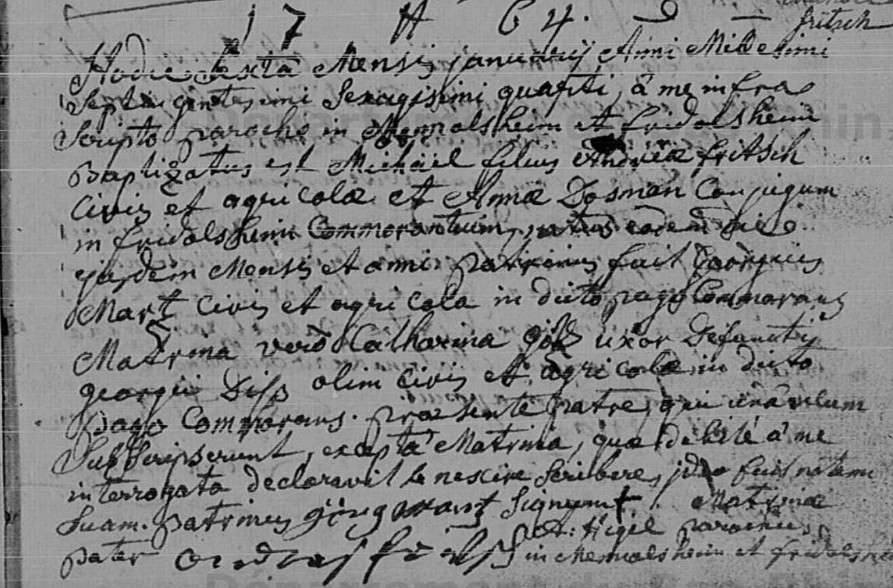 1764.
fritsch
Hodie Sexta Mensis januarij Anni Millesimi
Septingentesimi Sexagesimi quarti, à me infra
Scripto parocho in Mennolsheim et fridolsheim
baptizatus est Michael filius Andreæ fritsch
Civis et agricolæ et Annæ Dosman Conjugum
in fridolsheim Commorantium, natus eodem die
ejusdem Mensis et anni. patrinus fuit Georgius
Mart Civis et agricola in dicto pago Commorans
Matrina verò Catharina uxor Defuncti
georgii Diss olim Civis et agricolæ in dicto
pago Commorans. præsente patre, qui unà mecum
SubScripserunt, exceptâ Matrinâ, quæ debitè à me
interrogata declaravit se nescire Scribere, ideo fecit notam
Suam. patrinus Signum + Matrinæ
A. Higel parochus
pater in Mennolsheim et fridolsheim